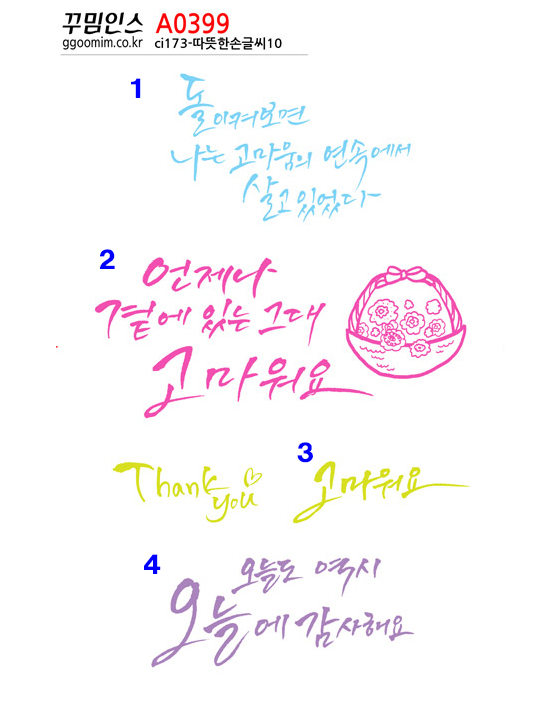 꾸밈인스 A0399
ggoomim.co.kr ci173-따뜻한손글씨10
1
돌이켜보면
나는 고마움의 연속에서
살고 있었다
2
언제나
곁에 있는 그대
고마워요
3
Thank you
고마워요
4
오늘도 역시
오늘에 감사해요